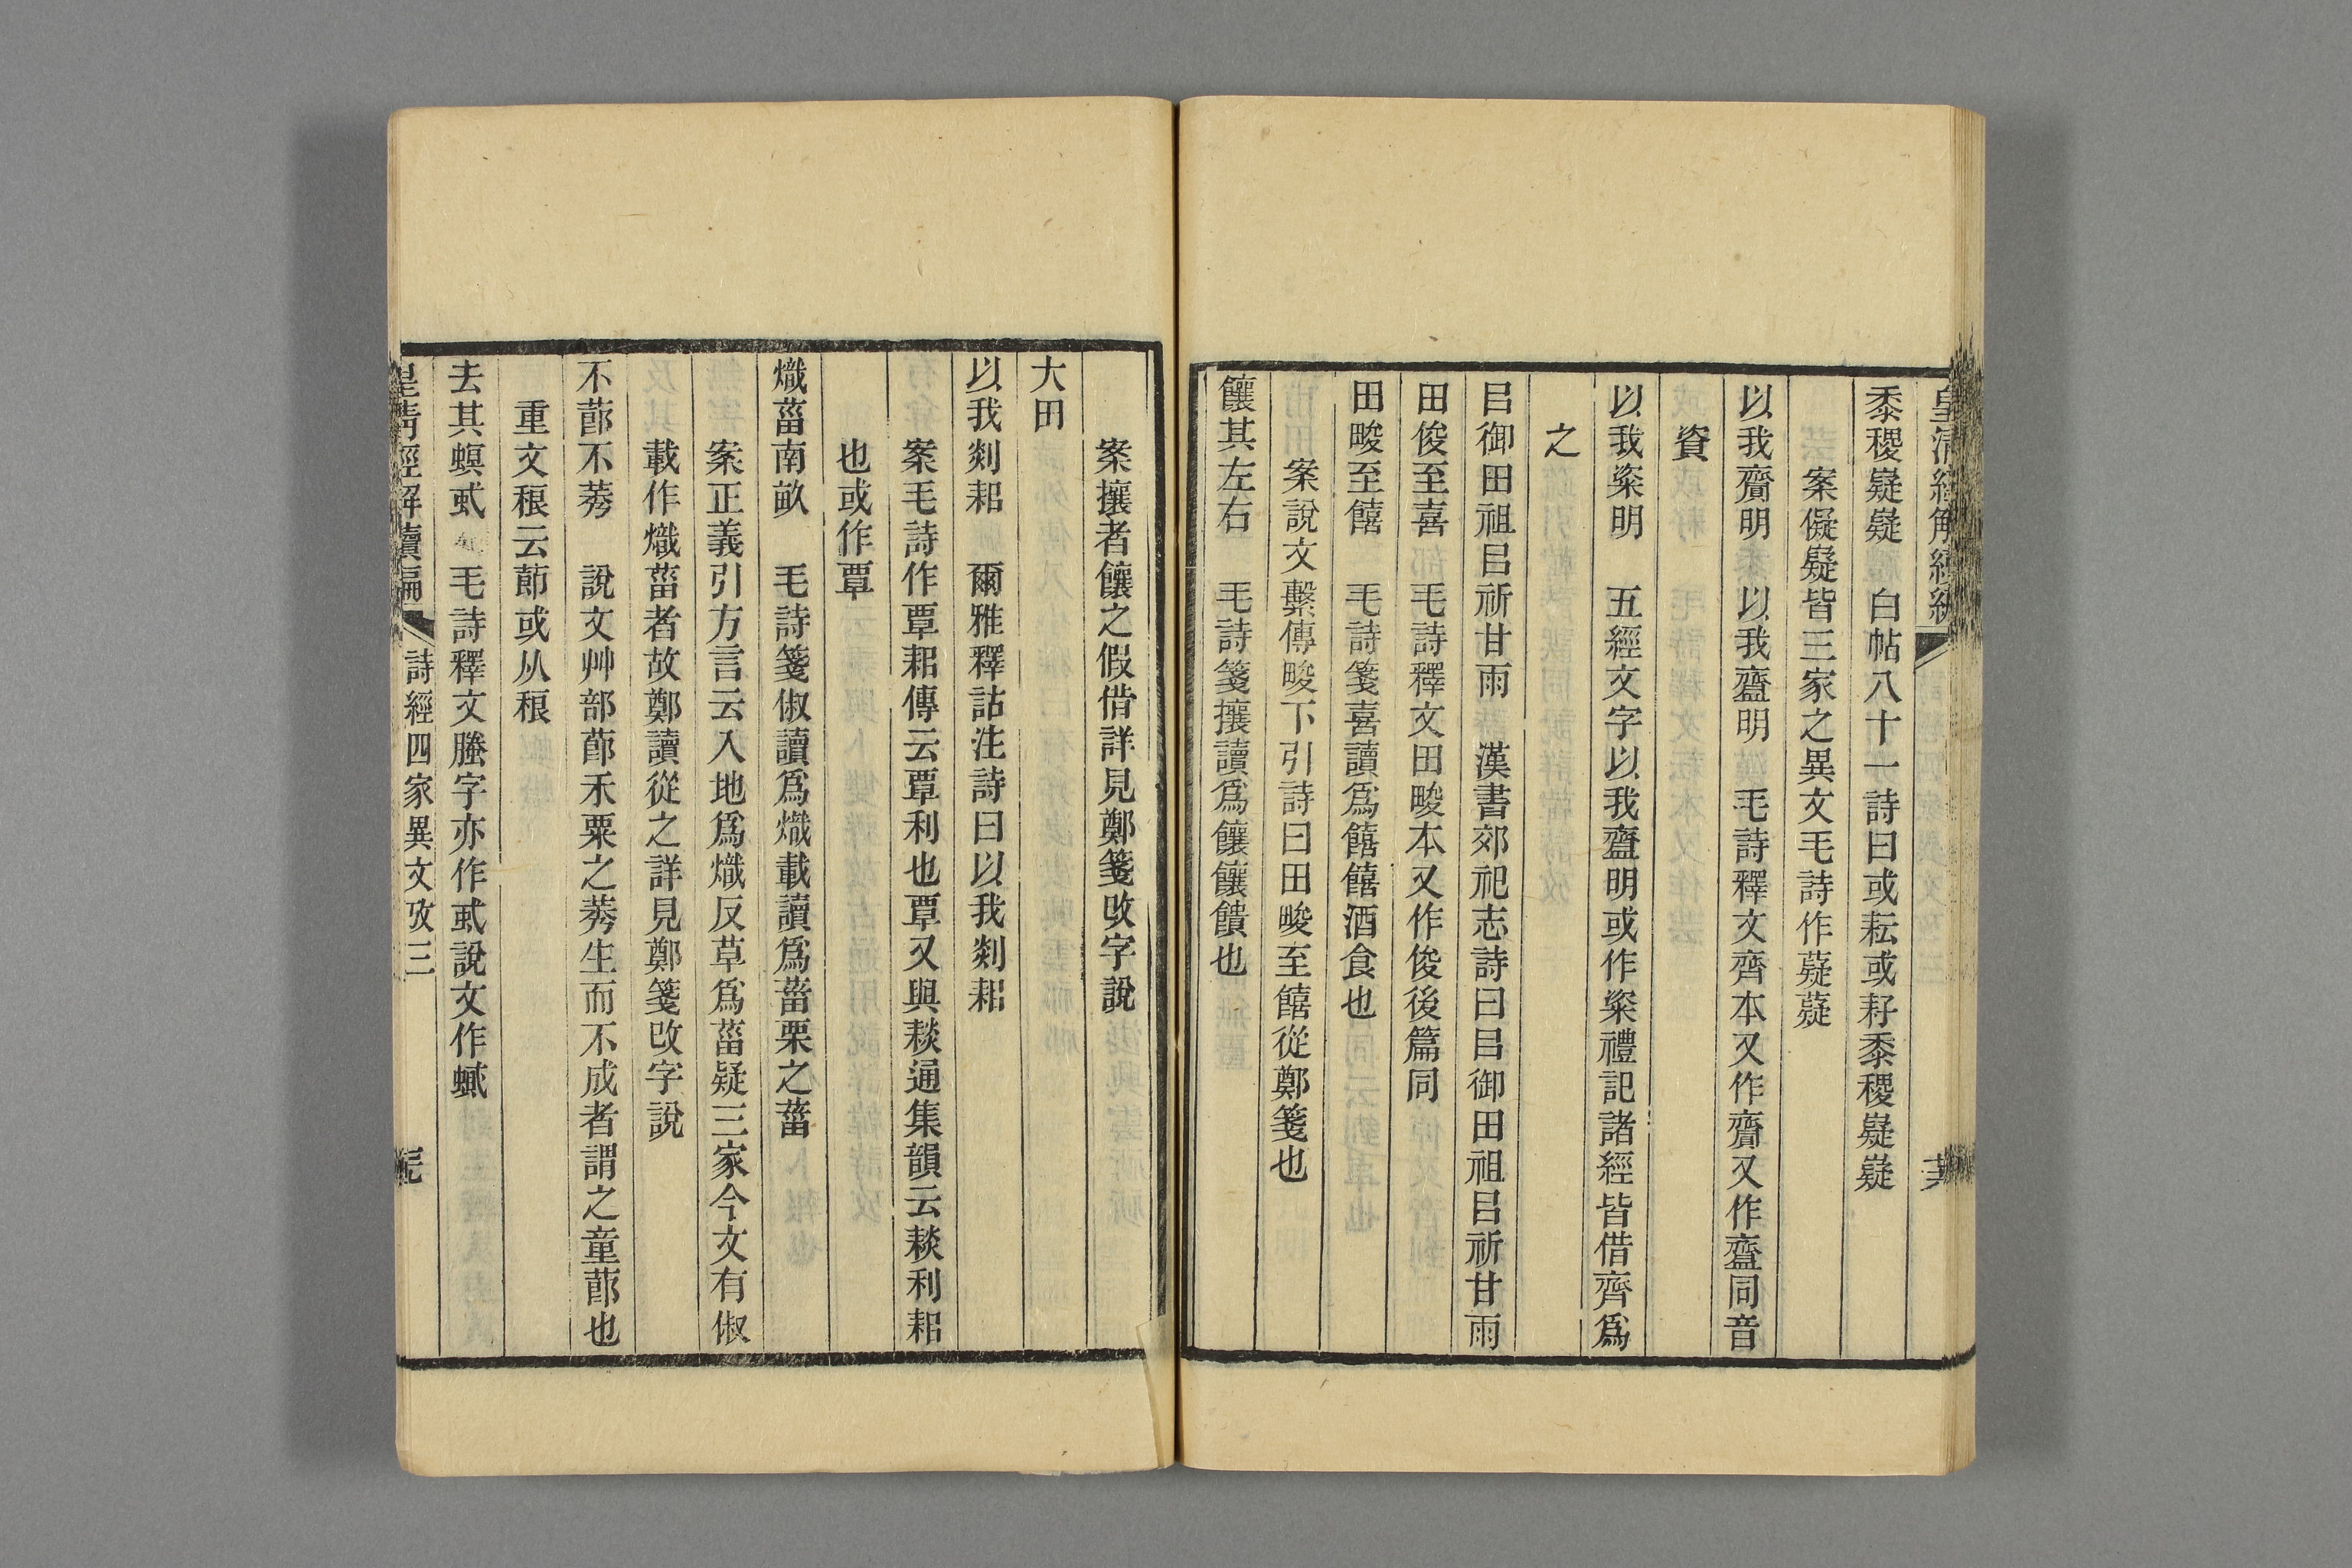 皇清經解續編
黍稷嶷嶷　白帖八十一詩曰或耘或耔黍稷嶷嶷
案儗嶷皆三家之異文毛詩作薿薿
以我齎明　以我齍明　毛詩釋文齊本又作齎又作齍同音
資
以我粢明　五經文字以我齍明或作粢禮記諸經皆借齊爲
之
㠯御田祖㠯祈甘雨　漢書郊祀志詩曰㠯御田祖㠯祈甘雨
田俊至喜　毛詩釋文田畯本又作俊後篇同
田畯至饎　毛詩箋喜讀爲饎饎酒食也
案說文繫傳畯下引詩曰田畯至饎從鄭箋也
饟其左右　毛詩箋攘讀爲饟饟饋也
案攘者饟之假借詳見鄭箋攺字說
大田
以我剡耜　爾雅釋詁注詩曰以我剡耜
案毛詩作覃耜傳云覃利也覃又與䅦通集韻云䅦利耜
也或作覃
熾菑南畝　毛詩箋俶讀爲熾載讀爲菑栗之菑
案正義引方言云入地爲熾反草爲菑疑三家今文有俶
載作熾菑者故鄭讀從之詳見鄭箋攺字說
不蓈不莠　說文艸部蓈禾粟之莠生而不成者謂之童蓈也
重文稂云蓈或从稂
去其螟䖧　毛詩釋文螣字亦作䖧說文作蟘
皇清經解續編　詩經四家異文攷三